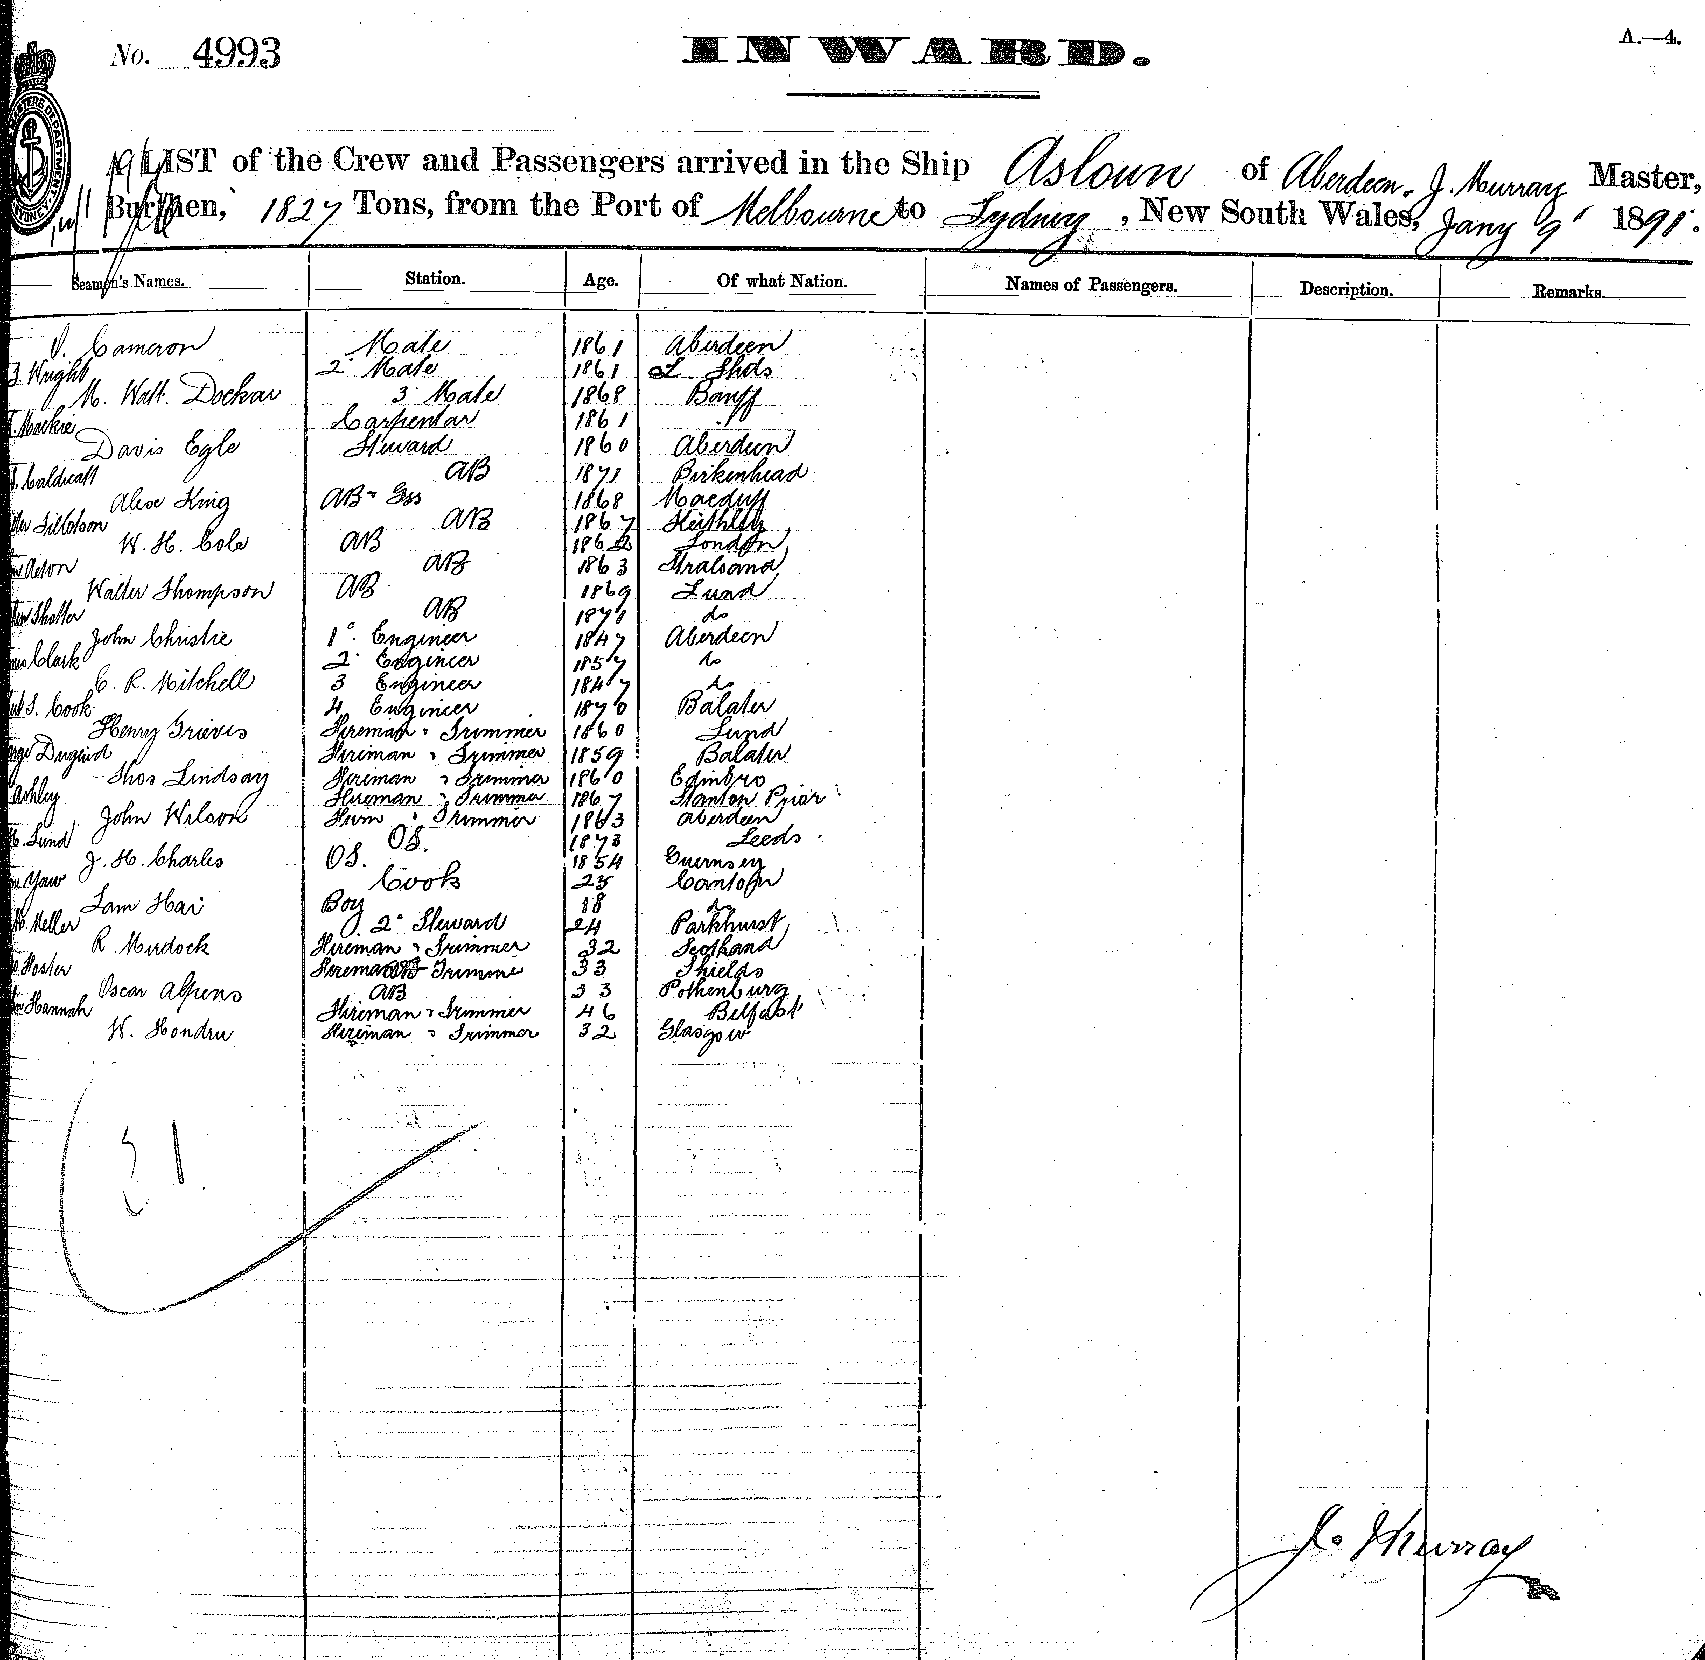 No. 4993
INWARD.
A.—4.
LIST of the Crew and Passengers arrived in the Ship Asloun of Aberdeen, J. Murray Master,
Burthen, 1827 Tons, from the Port of Melbourne to Sydney, New South Wales, Jany 9 1891.
Seamen's Names. Station. Age. Of what Nation. Names of Passengers. Description. Remarks.
Cameron Mate 1861 Aberdeen
Wright 2 Mate 1861 Shds
M. Watt. Dockar 3 Mate 1868 Banff
Mackie Carpentar 1861
Davis Egle Steward 1860 Aberdeen
Caldicatt AB 1871 Birkenhead
Alexe King AB 1868 Macduff
Tillotson AB 1867 Keithley
W. H. Cole AB London
AB 1863 Stralsand
Walter Thompson AB 1869 Lund
AB do
John Christie 1° Engineer 1847 Aberdeen
Clark 2 Engineer 1857 do
C. R. Mitchell 3 Engineer 1847 do
S. Cook 4 Engineer 1870 Balater
Henry Grieves Fireman & Trimmer 1860 Lund
Duguid Fireman & Trimmer 1859 Balater
Thos Lindsay Fireman & Trimmer 1860 Edinbro
Ashley Fireman & Trimmer 1867 Stanton Prior
John Wilson Firem & Trimmer 1863 Aberdeen
Lund OS. 1873 Leeds
J. H. Charles OS. 1854 Guernsey
Yaw Cook 25 Canton
Lam Hai Boy 18 do
Meller 2° Steward 24 Parkhurst
R. Murdock Fireman & Trimmer 32 Scotland
Foster Fireman & Trimme 33 Shields
Oscar Alpens AB 33 Pothenburg
Hannah Fireman & Trimmer 46 Belfast
W. Hondru Fireman & Trimmer 32 Glasgow
31
J. Murray